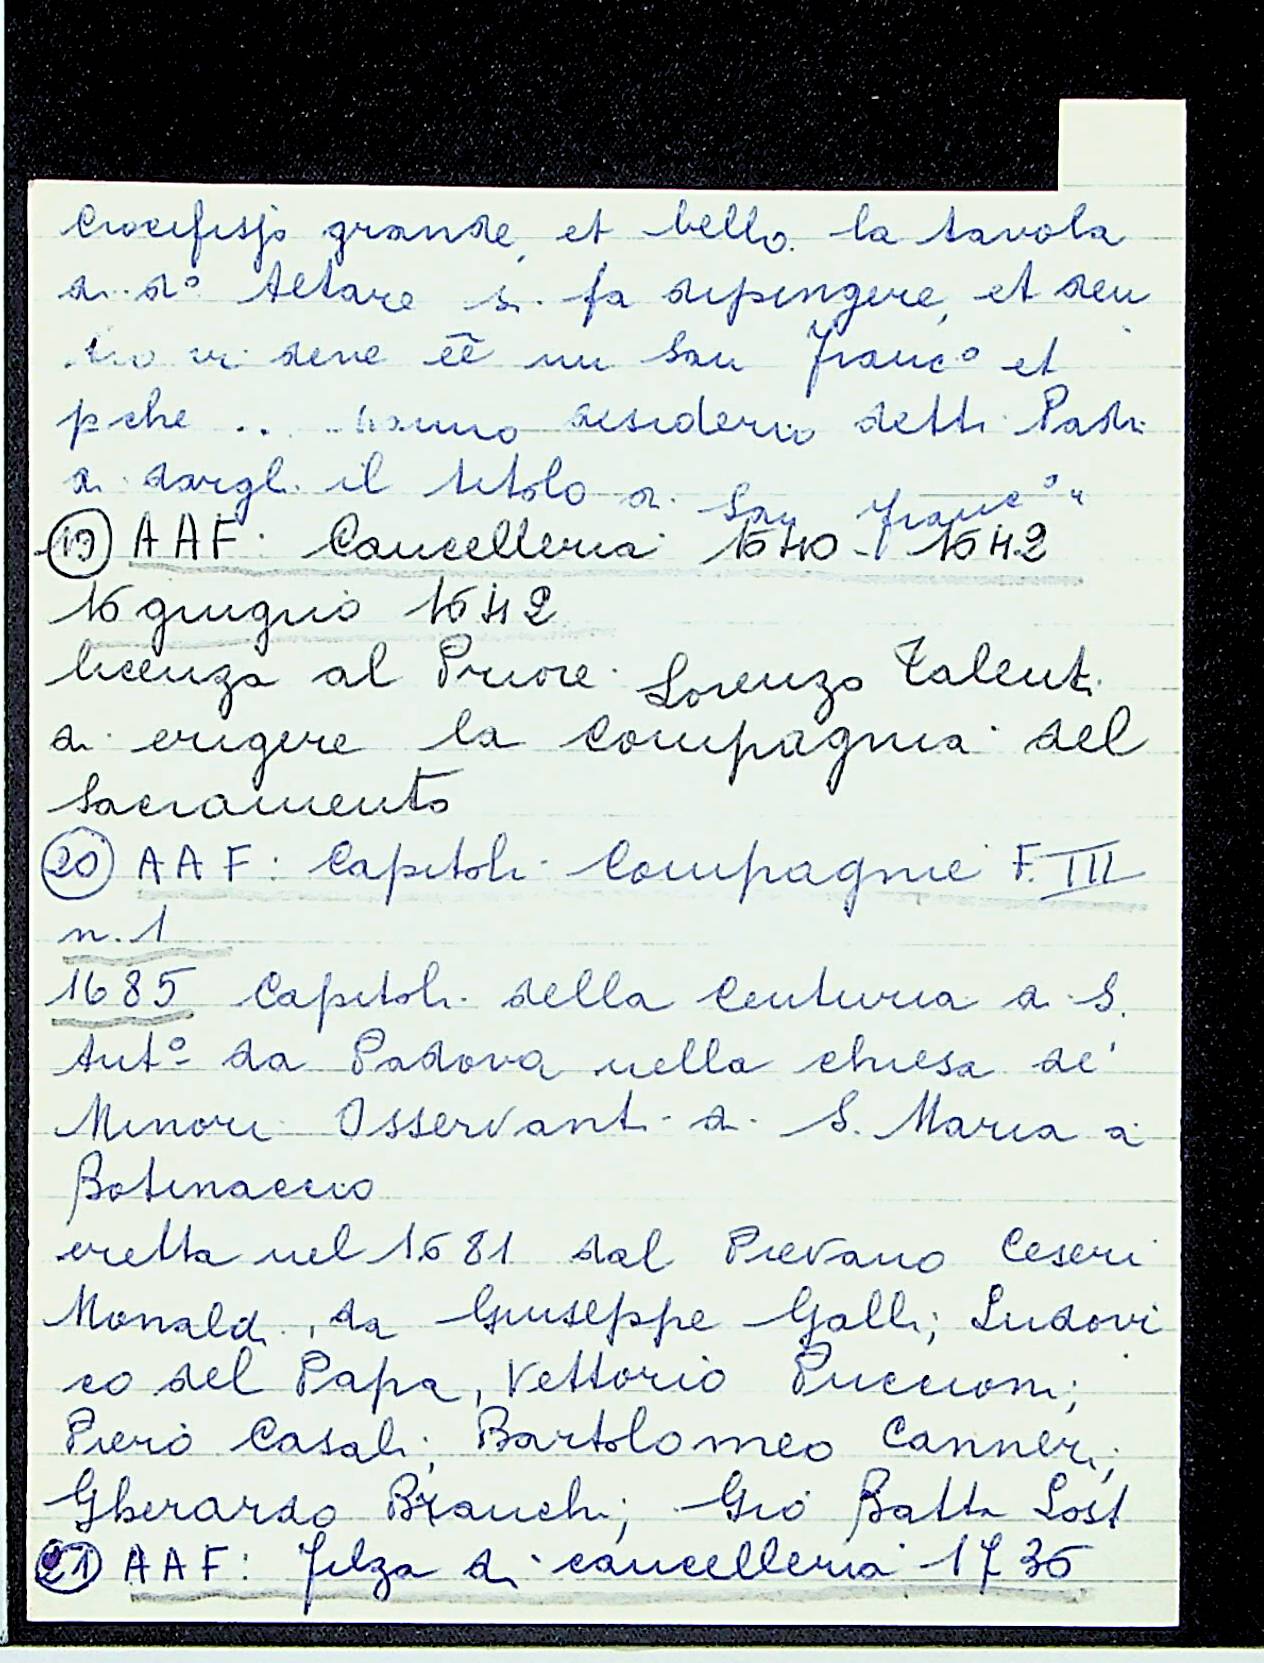 Crocifisso grande, et bello. la tavola
di do Altare si fa dipingere, et den
tro vi deve eẽ un San Franco et
pche .. hanno desiderio detti Padri
di dargli il titolo di San Franco"
(19) AAF: Cancelleria 1640-1642
16 giugno 1642
licenza al Priore Lorenzo Talenti
di erigere la Compagnia del
Sacramento
(20) AAF: Capitoli Compagnie F. III
n. 1
1685 Capitoli della Centuria di S.
Anto da Padova nella chiesa de'
Minori Osservanti di S. Maria a
Botinaccio
eretta nel 1681 dal Pievano Ceseri
Monaldi, da Giuseppe Galli; Ludovi
co del Papa, Vettorio Puccioni;
Piero Casali; Bartolomeo Canneri;
Gherardo Branchi; Gio Batta
(21) AAF: Filza di cancelleria 1736